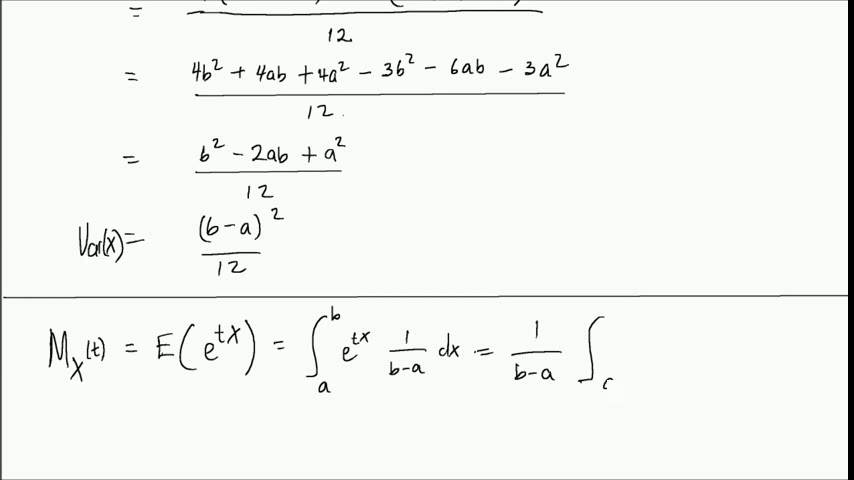 =
12
= 4b² + 4ab + 4a² - 3b² - 6ab - 3a²
12
= b² - 2ab + a²
12
Var(x) = (b-a)²
12
M_X(t) = E(e^{tX}) = ∫_a^b e^{tx} 1/(b-a) dx = 1/(b-a) ∫